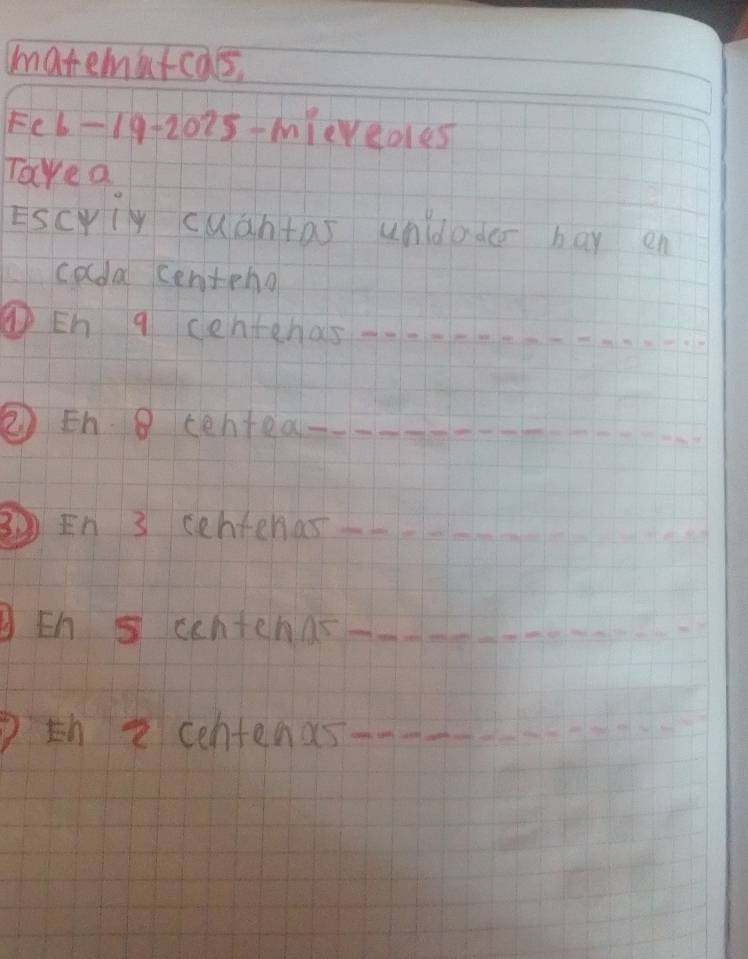 matematcas.
Feb-19-2025-miereoles
Tarea
Escrir cuantas unidades hay en
cada centena
① En 9 centenas
② En 8 centea
③ En 3 centenas
En 5 centenas
En 2 centenas